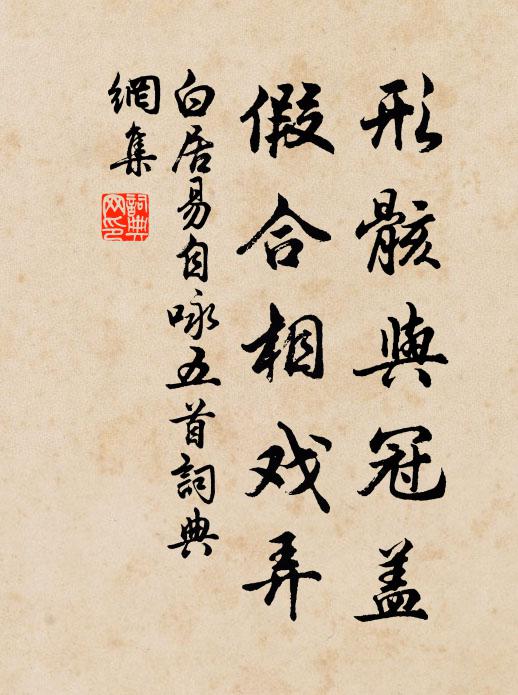 形骸與冠盖
假合相戏弄
白居易自咏五首詞典
網集
詞典網印